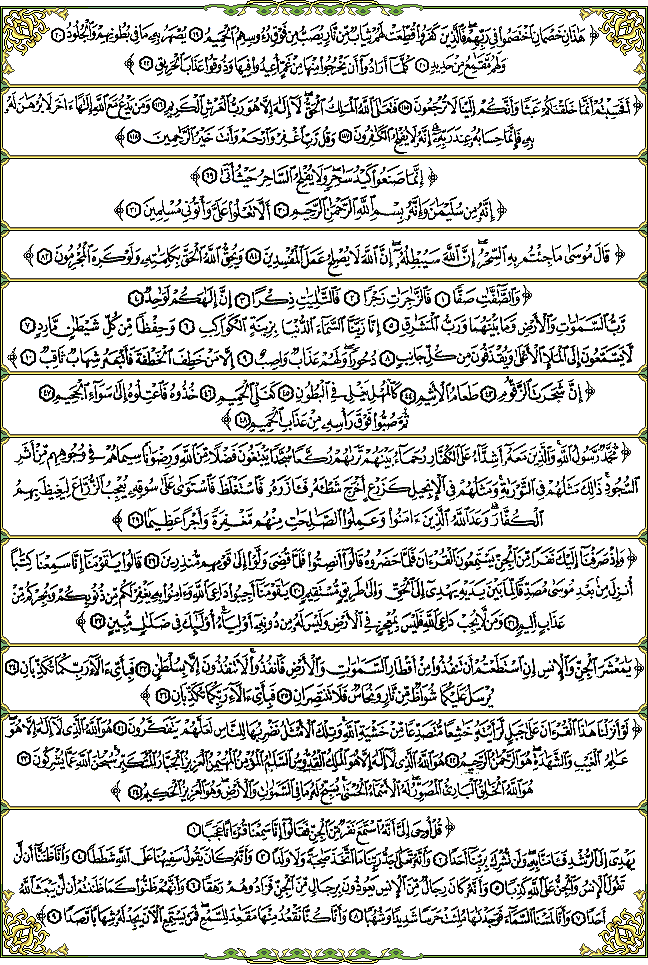 ﴿ هَٰذَانِ خَصْمَانِ ٱخْتَصَمُوا۟ فِى رَبِّهِمْ ۖ فَٱلَّذِينَ كَفَرُوا۟ قُطِّعَتْ لَهُمْ ثِيَابٌ مِّن نَّارٍ يُصَبُّ مِن فَوْقِ رُءُوسِهِمُ ٱلْحَمِيمُ ١٩ يُصْهَرُ بِهِۦ مَا فِى بُطُونِهِمْ وَٱلْجُلُودُ ٢٠
وَلَهُم مَّقَٰمِعُ مِنْ حَدِيدٍ ٢١ كُلَّمَآ أَرَادُوٓا۟ أَن يَخْرُجُوا۟ مِنْهَا مِنْ غَمٍّ أُعِيدُوا۟ فِيهَا وَذُوقُوا۟ عَذَابَ ٱلْحَرِيقِ ٢٢ ﴾
﴿ أَفَحَسِبْتُمْ أَنَّمَا خَلَقْنَٰكُمْ عَبَثًا وَأَنَّكُمْ إِلَيْنَا لَا تُرْجَعُونَ ١١٥ فَتَعَٰلَى ٱللَّهُ ٱلْمَلِكُ ٱلْحَقُّ ۖ لَآ إِلَٰهَ إِلَّا هُوَ رَبُّ ٱلْعَرْشِ ٱلْكَرِيمِ ١١٦ وَمَن يَدْعُ مَعَ ٱللَّهِ إِلَٰهًا ءَاخَرَ لَا بُرْهَٰنَ لَهُۥ
بِهِۦ فَإِنَّمَا حِسَابُهُۥ عِندَ رَبِّهِۦٓ ۚ إِنَّهُۥ لَا يُفْلِحُ ٱلْكَٰفِرُونَ ١١٧ وَقُل رَّبِّ ٱغْفِرْ وَٱرْحَمْ وَأَنتَ خَيْرُ ٱلرَّٰحِمِينَ ١١٨ ﴾
﴿ إِنَّمَا صَنَعُوا۟ كَيْدُ سَٰحِرٍ ۖ وَلَا يُفْلِحُ ٱلسَّاحِرُ حَيْثُ أَتَىٰ ٦٩ ﴾
﴿ إِنَّهُۥ مِن سُلَيْمَٰنَ وَإِنَّهُۥ بِسْمِ ٱللَّهِ ٱلرَّحْمَٰنِ ٱلرَّحِيمِ ٣٠ أَلَّا تَعْلُوا۟ عَلَىَّ وَأْتُونِى مُسْلِمِينَ ٣١ ﴾
﴿ قَالَ مُوسَىٰ مَا جِئْتُم بِهِ ٱلسِّحْرُ ۖ إِنَّ ٱللَّهَ سَيُبْطِلُهُۥٓ ۖ إِنَّ ٱللَّهَ لَا يُصْلِحُ عَمَلَ ٱلْمُفْسِدِينَ ٨١ وَيُحِقُّ ٱللَّهُ ٱلْحَقَّ بِكَلِمَٰتِهِۦ وَلَوْ كَرِهَ ٱلْمُجْرِمُونَ ٨٢ ﴾
﴿ وَٱلصَّٰٓفَّٰتِ صَفًّا ١ فَٱلزَّٰجِرَٰتِ زَجْرًا ٢ فَٱلتَّٰلِيَٰتِ ذِكْرًا ٣ إِنَّ إِلَٰهَكُمْ لَوَٰحِدٌ ٤
رَّبُّ ٱلسَّمَٰوَٰتِ وَٱلْأَرْضِ وَمَا بَيْنَهُمَا وَرَبُّ ٱلْمَشَٰرِقِ ٥ إِنَّا زَيَّنَّا ٱلسَّمَآءَ ٱلدُّنْيَا بِزِينَةٍ ٱلْكَوَاكِبِ ٦ وَحِفْظًا مِّن كُلِّ شَيْطَٰنٍ مَّارِدٍ ٧
لَّا يَسَّمَّعُونَ إِلَى ٱلْمَلَإِ ٱلْأَعْلَىٰ وَيُقْذَفُونَ مِن كُلِّ جَانِبٍ ٨ دُحُورًا ۖ وَلَهُمْ عَذَابٌ وَاصِبٌ ٩ إِلَّا مَنْ خَطِفَ ٱلْخَطْفَةَ فَأَتْبَعَهُۥ شِهَابٌ ثَاقِبٌ ١٠ ﴾
﴿ إِنَّ شَجَرَتَ ٱلزَّقُّومِ ٤٣ طَعَامُ ٱلْأَثِيمِ ٤٤ كَٱلْمُهْلِ يَغْلِى فِى ٱلْبُطُونِ ٤٥ كَغَلْىِ ٱلْحَمِيمِ ٤٦ خُذُوهُ فَٱعْتِلُوهُ إِلَىٰ سَوَآءِ ٱلْجَحِيمِ ٤٧
ثُمَّ صُبُّوا۟ فَوْقَ رَأْسِهِۦ مِنْ عَذَابِ ٱلْحَمِيمِ ٤٨ ﴾
﴿ مُّحَمَّدٌ رَّسُولُ ٱللَّهِ ۚ وَٱلَّذِينَ مَعَهُۥٓ أَشِدَّآءُ عَلَى ٱلْكُفَّارِ رُحَمَآءُ بَيْنَهُمْ ۖ تَرَىٰهُمْ رُكَّعًا سُجَّدًا يَبْتَغُونَ فَضْلًا مِّنَ ٱللَّهِ وَرِضْوَٰنًا ۖ سِيمَاهُمْ فِى وُجُوهِهِم مِّنْ أَثَرِ
ٱلسُّجُودِ ۚ ذَٰلِكَ مَثَلُهُمْ فِى ٱلتَّوْرَىٰةِ ۚ وَمَثَلُهُمْ فِى ٱلْإِنجِيلِ كَزَرْعٍ أَخْرَجَ شَطْـَٔهُۥ فَـَٔازَرَهُۥ فَٱسْتَغْلَظَ فَٱسْتَوَىٰ عَلَىٰ سُوقِهِۦ يُعْجِبُ ٱلزُّرَّاعَ لِيَغِيظَ بِهِمُ
ٱلْكُفَّارَ ۗ وَعَدَ ٱللَّهُ ٱلَّذِينَ ءَامَنُوا۟ وَعَمِلُوا۟ ٱلصَّٰلِحَٰتِ مِنْهُم مَّغْفِرَةً وَأَجْرًا عَظِيمًۢا ٢٩ ﴾
﴿ وَإِذْ صَرَفْنَآ إِلَيْكَ نَفَرًا مِّنَ ٱلْجِنِّ يَسْتَمِعُونَ ٱلْقُرْءَانَ فَلَمَّا حَضَرُوهُ قَالُوٓا۟ أَنصِتُوا۟ ۖ فَلَمَّا قُضِىَ وَلَّوْا۟ إِلَىٰ قَوْمِهِم مُّنذِرِينَ ٢٩ قَالُوا۟ يَٰقَوْمَنَآ إِنَّا سَمِعْنَا كِتَٰبًا
أُنزِلَ مِنۢ بَعْدِ مُوسَىٰ مُصَدِّقًا لِّمَا بَيْنَ يَدَيْهِ يَهْدِىٓ إِلَى ٱلْحَقِّ وَإِلَىٰ طَرِيقٍ مُّسْتَقِيمٍ ٣٠ يَٰقَوْمَنَآ أَجِيبُوا۟ دَاعِىَ ٱللَّهِ وَءَامِنُوا۟ بِهِۦ يَغْفِرْ لَكُم مِّن ذُنُوبِكُمْ وَيُجِرْكُم مِّنْ
عَذَابٍ أَلِيمٍ ٣١ وَمَن لَّا يُجِبْ دَاعِىَ ٱللَّهِ فَلَيْسَ بِمُعْجِزٍ فِى ٱلْأَرْضِ وَلَيْسَ لَهُۥ مِن دُونِهِۦٓ أَوْلِيَآءُ ۚ أُو۟لَٰٓئِكَ فِى ضَلَٰلٍ مُّبِينٍ ٣٢ ﴾
﴿ يَٰمَعْشَرَ ٱلْجِنِّ وَٱلْإِنسِ إِنِ ٱسْتَطَعْتُمْ أَن تَنفُذُوا۟ مِنْ أَقْطَارِ ٱلسَّمَٰوَٰتِ وَٱلْأَرْضِ فَٱنفُذُوا۟ ۚ لَا تَنفُذُونَ إِلَّا بِسُلْطَٰنٍ ٣٣ فَبِأَىِّ ءَالَآءِ رَبِّكُمَا تُكَذِّبَانِ ٣٤
يُرْسَلُ عَلَيْكُمَا شُوَاظٌ مِّن نَّارٍ وَنُحَاسٌ فَلَا تَنتَصِرَانِ ٣٥ فَبِأَىِّ ءَالَآءِ رَبِّكُمَا تُكَذِّبَانِ ٣٦ ﴾
﴿ لَوْ أَنزَلْنَا هَٰذَا ٱلْقُرْءَانَ عَلَىٰ جَبَلٍ لَّرَأَيْتَهُۥ خَٰشِعًا مُّتَصَدِّعًا مِّنْ خَشْيَةِ ٱللَّهِ ۚ وَتِلْكَ ٱلْأَمْثَٰلُ نَضْرِبُهَا لِلنَّاسِ لَعَلَّهُمْ يَتَفَكَّرُونَ ٢١ هُوَ ٱللَّهُ ٱلَّذِى لَآ إِلَٰهَ إِلَّا هُوَ ۖ
عَٰلِمُ ٱلْغَيْبِ وَٱلشَّهَٰدَةِ ۖ هُوَ ٱلرَّحْمَٰنُ ٱلرَّحِيمُ ٢٢ هُوَ ٱللَّهُ ٱلَّذِى لَآ إِلَٰهَ إِلَّا هُوَ ٱلْمَلِكُ ٱلْقُدُّوسُ ٱلسَّلَٰمُ ٱلْمُؤْمِنُ ٱلْمُهَيْمِنُ ٱلْعَزِيزُ ٱلْجَبَّارُ ٱلْمُتَكَبِّرُ ۚ سُبْحَٰنَ ٱللَّهِ عَمَّا يُشْرِكُونَ ٢٣
هُوَ ٱللَّهُ ٱلْخَٰلِقُ ٱلْبَارِئُ ٱلْمُصَوِّرُ ۖ لَهُ ٱلْأَسْمَآءُ ٱلْحُسْنَىٰ ۚ يُسَبِّحُ لَهُۥ مَا فِى ٱلسَّمَٰوَٰتِ وَٱلْأَرْضِ ۖ وَهُوَ ٱلْعَزِيزُ ٱلْحَكِيمُ ٢٤ ﴾
﴿ قُلْ أُوحِىَ إِلَىَّ أَنَّهُ ٱسْتَمَعَ نَفَرٌ مِّنَ ٱلْجِنِّ فَقَالُوٓا۟ إِنَّا سَمِعْنَا قُرْءَانًا عَجَبًا ١
يَهْدِىٓ إِلَى ٱلرُّشْدِ فَـَٔامَنَّا بِهِۦ ۖ وَلَن نُّشْرِكَ بِرَبِّنَآ أَحَدًا ٢ وَأَنَّهُۥ تَعَٰلَىٰ جَدُّ رَبِّنَا مَا ٱتَّخَذَ صَٰحِبَةً وَلَا وَلَدًا ٣ وَأَنَّهُۥ كَانَ يَقُولُ سَفِيهُنَا عَلَى ٱللَّهِ شَطَطًا ٤ وَأَنَّا ظَنَنَّآ أَن لَّن
تَقُولَ ٱلْإِنسُ وَٱلْجِنُّ عَلَى ٱللَّهِ كَذِبًا ٥ وَأَنَّهُۥ كَانَ رِجَالٌ مِّنَ ٱلْإِنسِ يَعُوذُونَ بِرِجَالٍ مِّنَ ٱلْجِنِّ فَزَادُوهُمْ رَهَقًا ٦ وَأَنَّهُمْ ظَنُّوا۟ كَمَا ظَنَنتُمْ أَن لَّن يَبْعَثَ ٱللَّهُ
أَحَدًا ٧ وَأَنَّا لَمَسْنَا ٱلسَّمَآءَ فَوَجَدْنَٰهَا مُلِئَتْ حَرَسًا شَدِيدًا وَشُهُبًا ٨ وَأَنَّا كُنَّا نَقْعُدُ مِنْهَا مَقَٰعِدَ لِلسَّمْعِ ۖ فَمَن يَسْتَمِعِ ٱلْـَٔانَ يَجِدْ لَهُۥ شِهَابًا رَّصَدًا ٩ ﴾